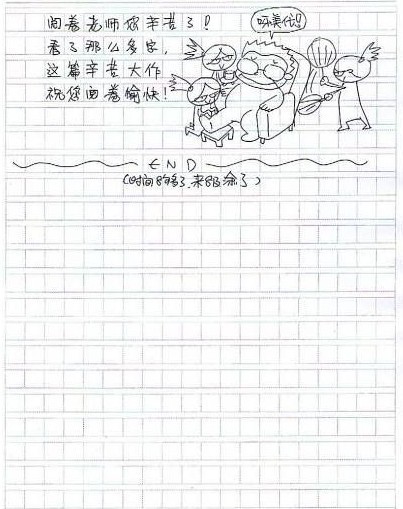 阅卷老师您辛苦了!
看了那么多字,
这篇辛苦大作
祝您阅卷愉快!
END
(时间够多了,来涂了)